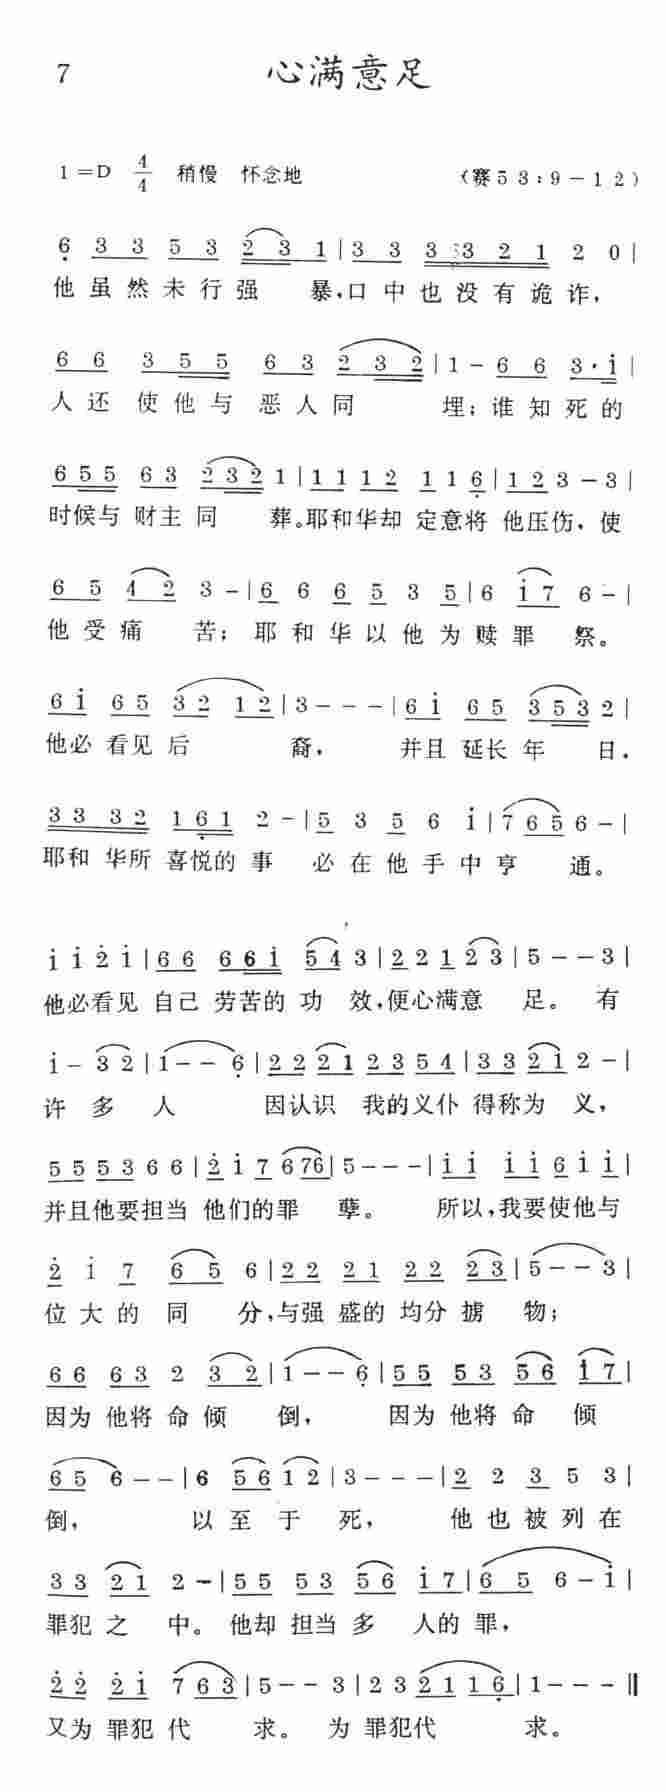 7 心满意足
1=D 4/4 稍慢 怀念地 (赛53:9-12)
6 3 3 5 3 2 3 1 | 3 3 3 3 2 1 2 0 |
他虽然未行强 暴,口中也没有诡诈,
6 6 3 5 5 6 3 2 3 2 | 1 - 6 6 3·i |
人还 使他与 恶人同 埋;谁知死的
6 5 5 6 3 2 3 2 1 | 1 1 1 2 1 1 6 | 1 2 3 - 3 |
时候与 财主同 葬。耶和华却 定意将 他压伤,使
6 5 4 2 3 - | 6 6 6 5 3 5 | 6 i 7 6 - |
他受痛 苦;耶和华以他为赎罪 祭。
6 i 6 5 3 2 1 2 | 3 - - - | 6 i 6 5 3 5 3 2 |
他必 看见后 裔, 并且 延长年 日.
3 3 3 2 1 6 1 2 - | 5 3 5 6 i | 7 6 5 6 - |
耶和 华所 喜悦的 事 必在他手中亨 通。
i i 2 i | 6 6 6 6 i 5 4 3 | 2 2 1 2 3 | 5 - - 3 |
他必看见 自己 劳苦的 功 效,便心满意 足。 有
i - 3 2 | 1 - - 6 | 2 2 2 1 2 3 5 4 | 3 3 2 1 2 - |
许 多 人 因认识 我的义仆 得称为 义,
5 5 5 3 6 6 | 2 i 7 6 7 6 | 5 - - - | i i i i 6 i i |
并且他要担当 他们的罪 孽。 所以,我要使他与
2 i 7 6 5 6 | 2 2 2 1 2 2 2 3 | 5 - - 3 |
位大的同 分,与强盛的 均分掳 物;
6 6 6 3 2 3 2 | 1 - - 6 | 5 5 5 3 5 6 i 7 |
因为 他将 命倾 倒, 因为 他将 命 倾
6 5 6 - - | 6 5 6 1 2 | 3 - - - | 2 2 3 5 3 |
倒, 以至于 死, 他也被列在
3 3 2 1 2 - | 5 5 5 3 5 6 i 7 | 6 5 6 - i |
罪犯之 中。他却 担当多 人的 罪,
2 2 2 i 7 6 3 | 5 - - 3 | 2 3 2 1 1 6 | 1 - - - ‖
又为 罪犯代 求。 为 罪犯代 求。